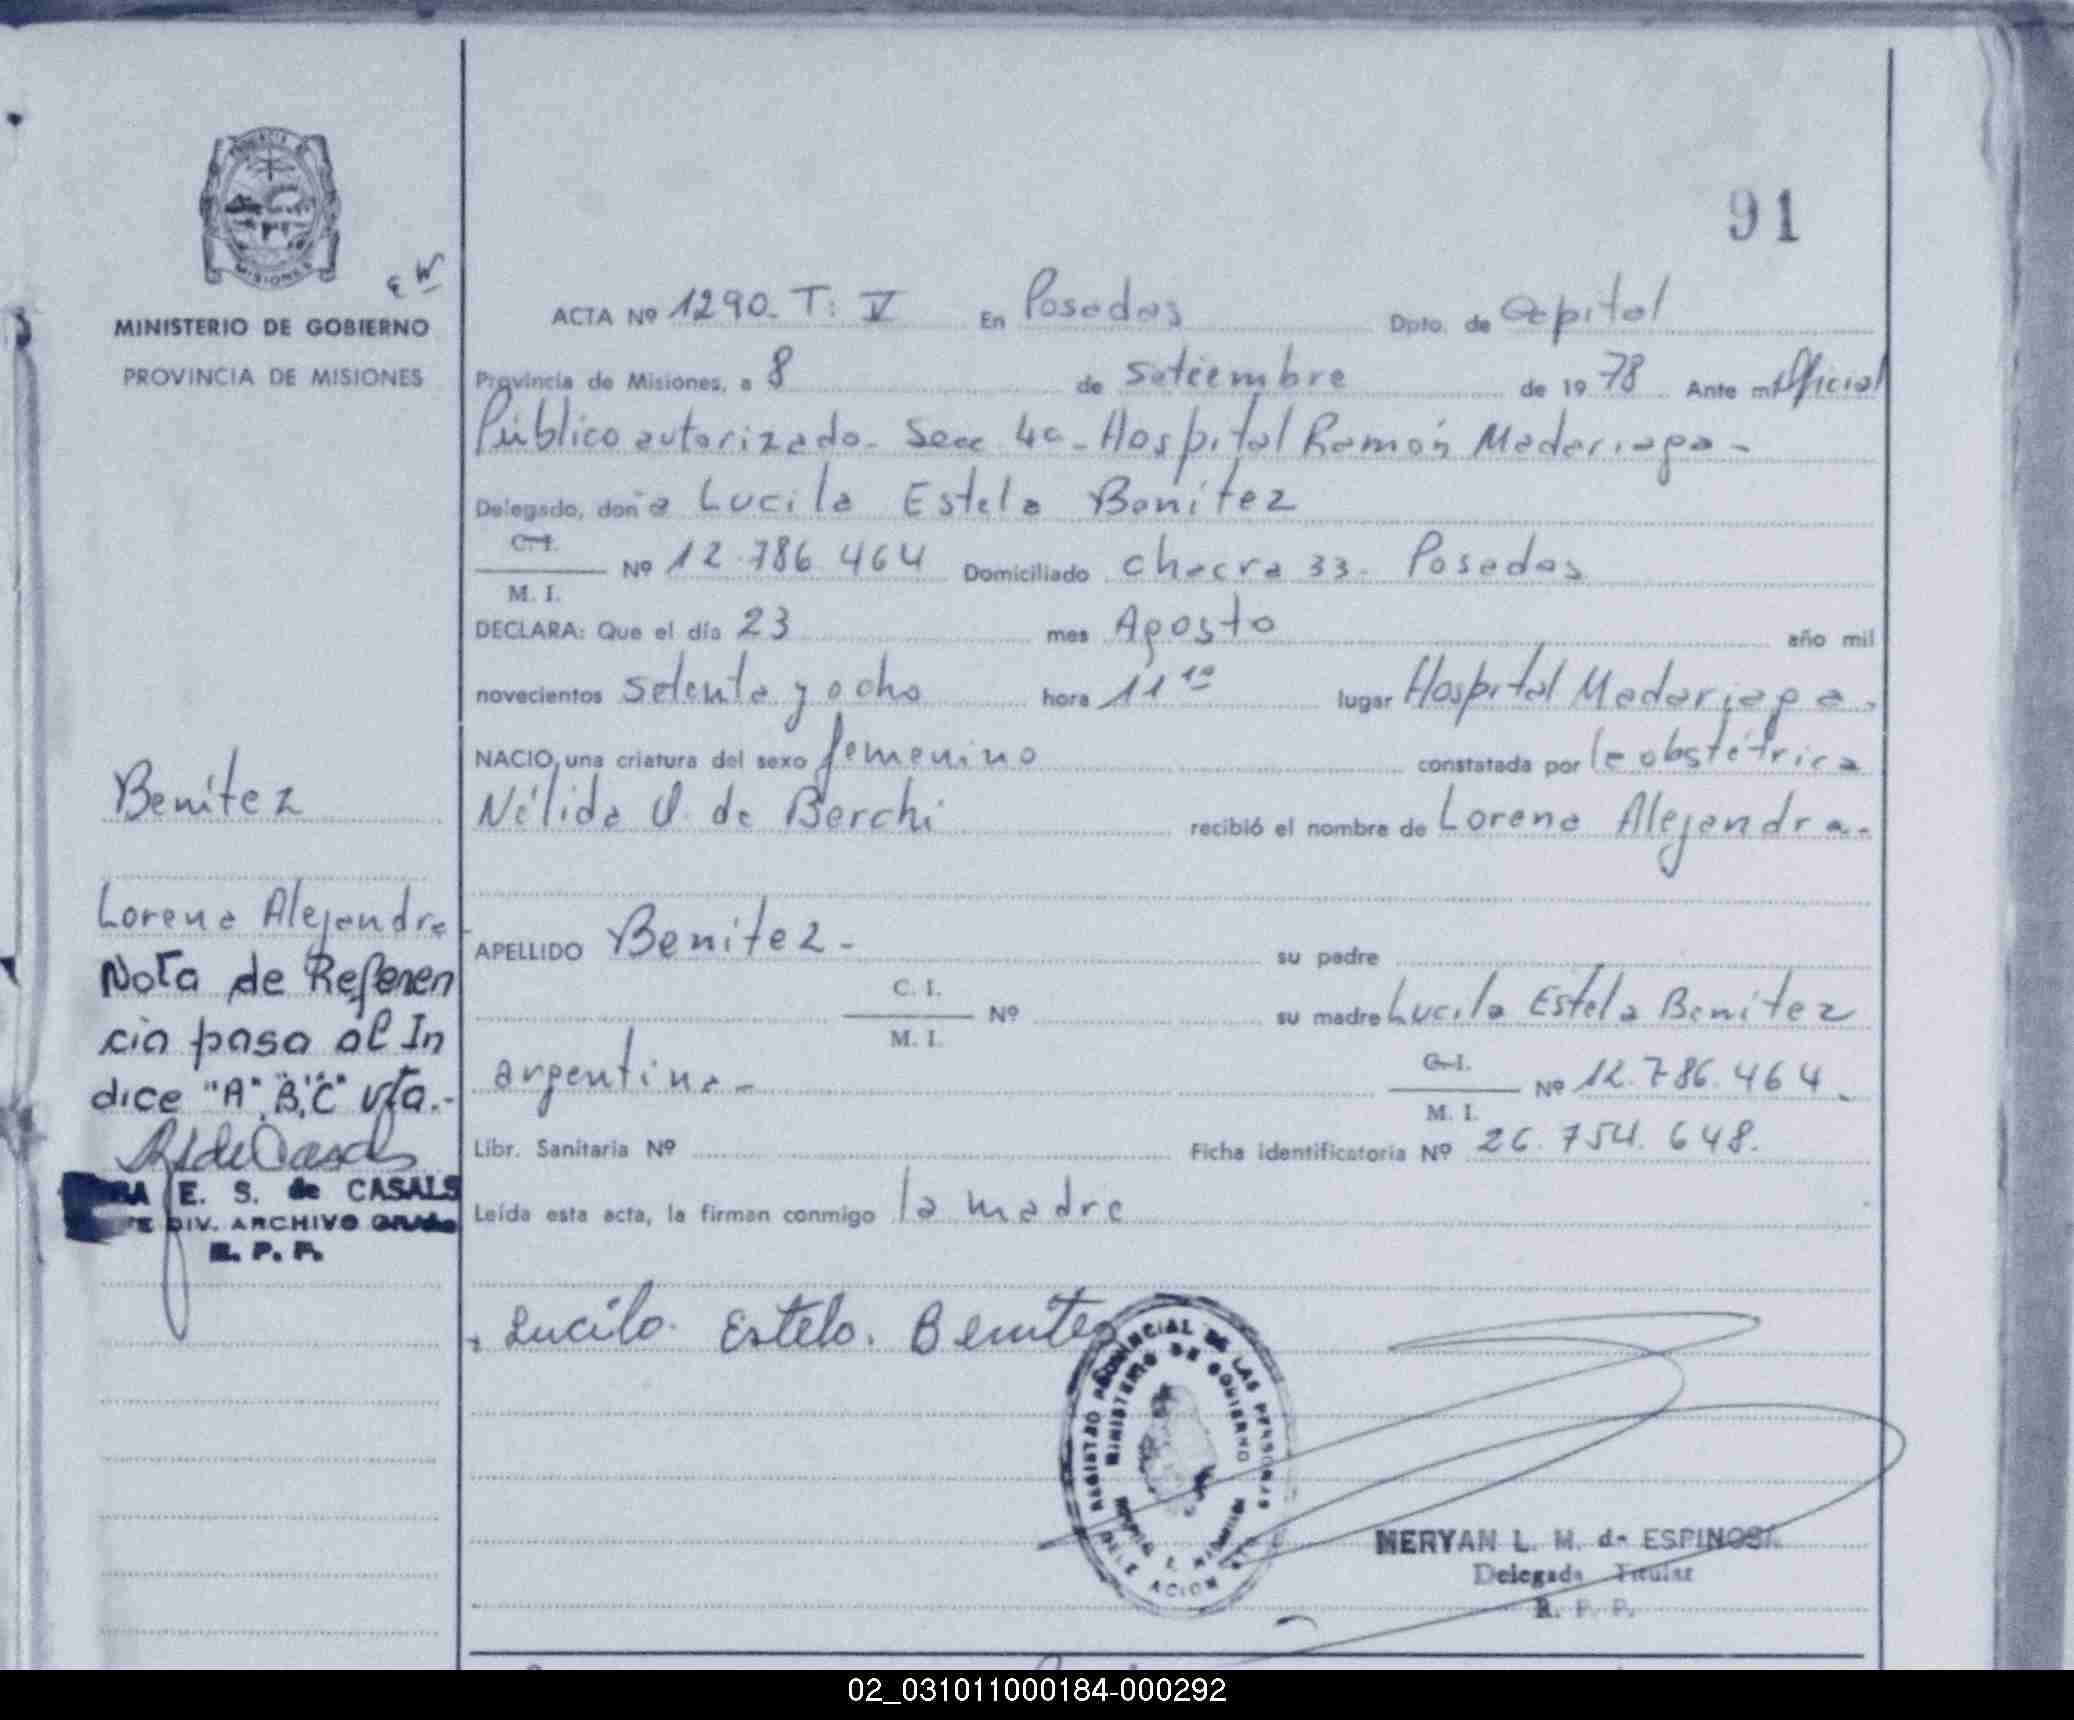 91
PROVINCIA DE
MISIONES
MINISTERIO DE GOBIERNO
PROVINCIA DE MISIONES
ACTA Nº 1290. T: V En Posadas Dpto. de Capital
Provincia de Misiones, a 8 de Setiembre de 1978 Ante mi Oficial
Público autorizado - Secc 4a - Hospital Ramón Madariaga -
Delegado, doña Lucila Estela Benitez
C. I.
M. I.
Nº 12.786.464 Domiciliado Chacra 33 - Posadas
DECLARA: Que el día 23 mes Agosto año mil
novecientos setenta y ocho hora 11 10 lugar Hospital Madariaga.
NACIO, una criatura del sexo femenino constatada por la obstétrica
Nélida O. de Berchi recibió el nombre de Lorena Alejandra.
APELLIDO Benitez - su padre
C. I.
M. I.
Nº su madre Lucila Estela Benitez
argentina -
C. I.
M. I.
Nº 12.786.464.
Libr. Sanitaria Nº Ficha identificatoria Nº 26.754.648.
Leída esta acta, la firman conmigo la madre
Lucila. Estela. Benitez
REGISTRO PROVINCIAL DE LAS PERSONAS
MINISTERIO DE GOBIERNO
MERYAN L. M. de ESPINOSA
Delegada Titular
R. P. P.
Benítez
Lorena Alejandra
Nota de Referen
cia pasa al In
dice "A", "B", "C" vta.-
E. S. de CASALS
DIV. ARCHIVO GRAL
R. P. P.
02_031011000184-000292